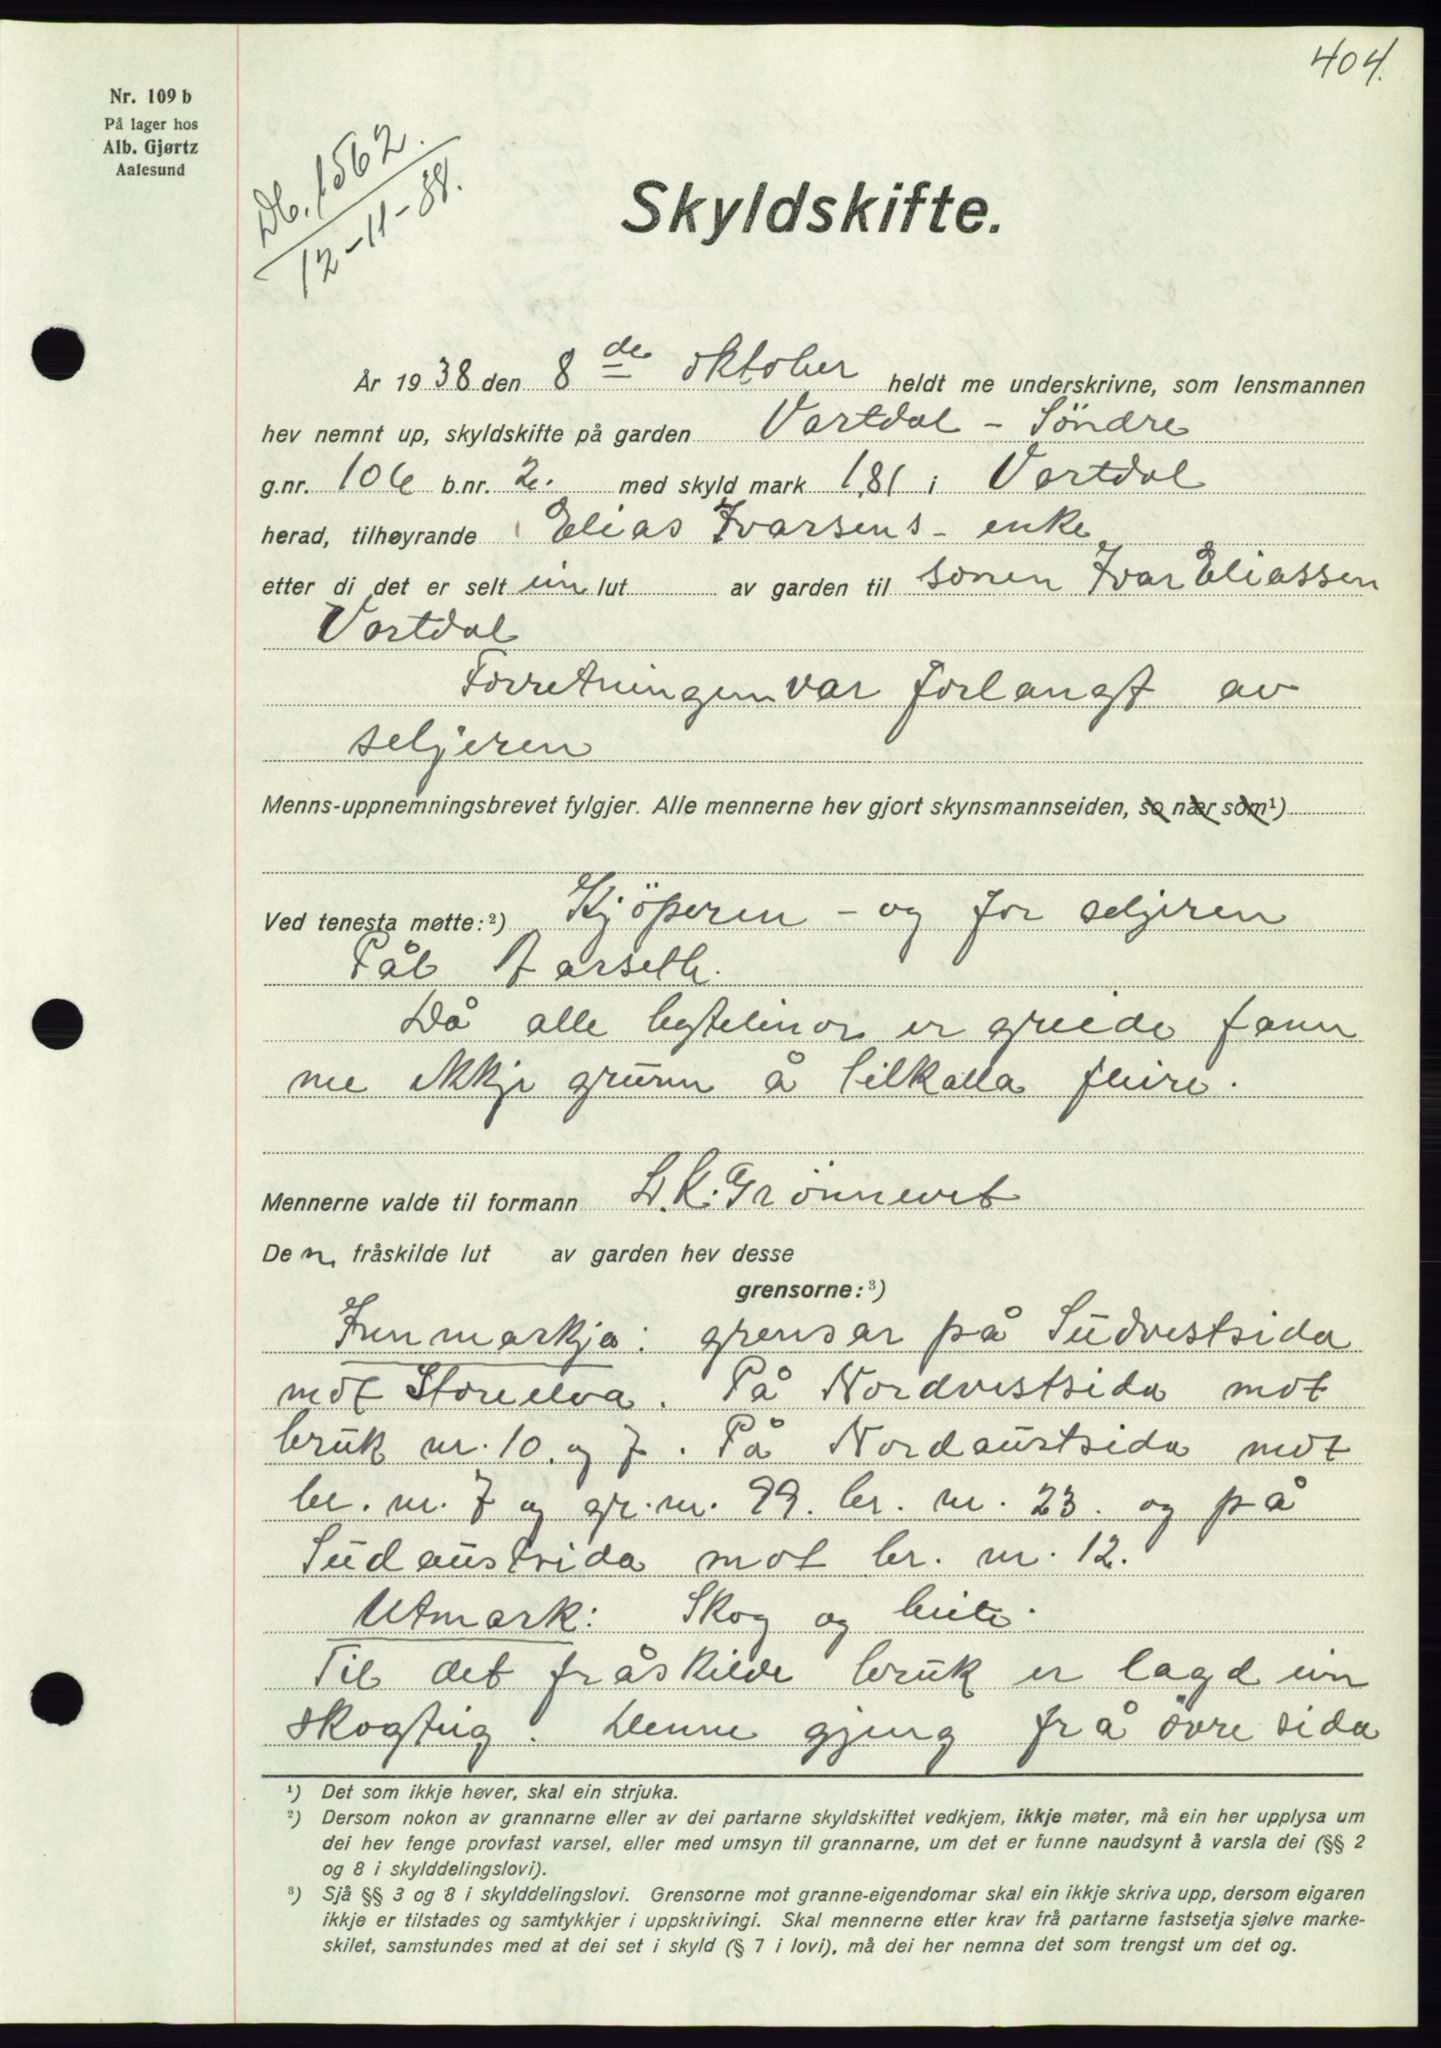 404.
Nr. 109 b
På lager hos
Alb. Gjørtz
Aalesund
Db. 1562.
12-11-38.
Skyldskifte.
År 1938 den 8de oktober heldt me underskrivne, som lensmannen
hev nemnt up, skyldskifte på garden Vartdal - Söndre
g.nr. 106 b.nr. 2. med skyld mark 1,81 i Vartdal
herad, tilhøyrande Elias Ivarsens - enke
etter di det er selt ein lut av garden til sonen Ivar Eliassen
Vartdal
Forretningen var forlangt av
seljeren
Menns-uppnemningsbrevet fylgjer. Alle mennerne hev gjort skynsmannseiden, so nær som¹)
Ved tenesta møtte:²) Kjöperen - og for seljeren
Pål Aarseth.
Då alle bytelinor er greide fann
me ikkje grunn å tilkalla fleire.
Mennerne valde til formann L. K. Grönnevet
De n fråskilde lut av garden hev desse
grensorne:³)
Innmarkja: grensar på Südvestsida
mot Storelva. På Nordvestsida mot
bruk nr. 10 og 7. På Nordaustsida mot
br. nr. 7 og gr. nr. 99. br. nr. 23. og på
Südaustsida mot br. nr. 12.
Utmark: Skog og beite.
Til det fråskilde bruk er lagd ein
skogteig. Denne gjeng frå övre sida
¹) Det som ikkje høver, skal ein strjuka.
²) Dersom nokon av grannarne eller av dei partarne skyldskiftet vedkjem, ikkje møter, må ein her upplysa um
dei hev fenge provfast varsel, eller med umsyn til grannarne, um det er funne naudsynt å varsla dei (§§ 2
og 8 i skylddelingslovi).
³) Sjå §§ 3 og 8 i skylddelingslovi. Grensorne mot granne-eigendomar skal ein ikkje skriva upp, dersom eigaren
ikkje er tilstades og samtykkjer i uppskrivingi. Skal mennerne etter krav frå partarne fastsetja sjølve marke-
skilet, samstundes med at dei set i skyld (§ 7 i lovi), må dei her nemna det som trengst um det og.